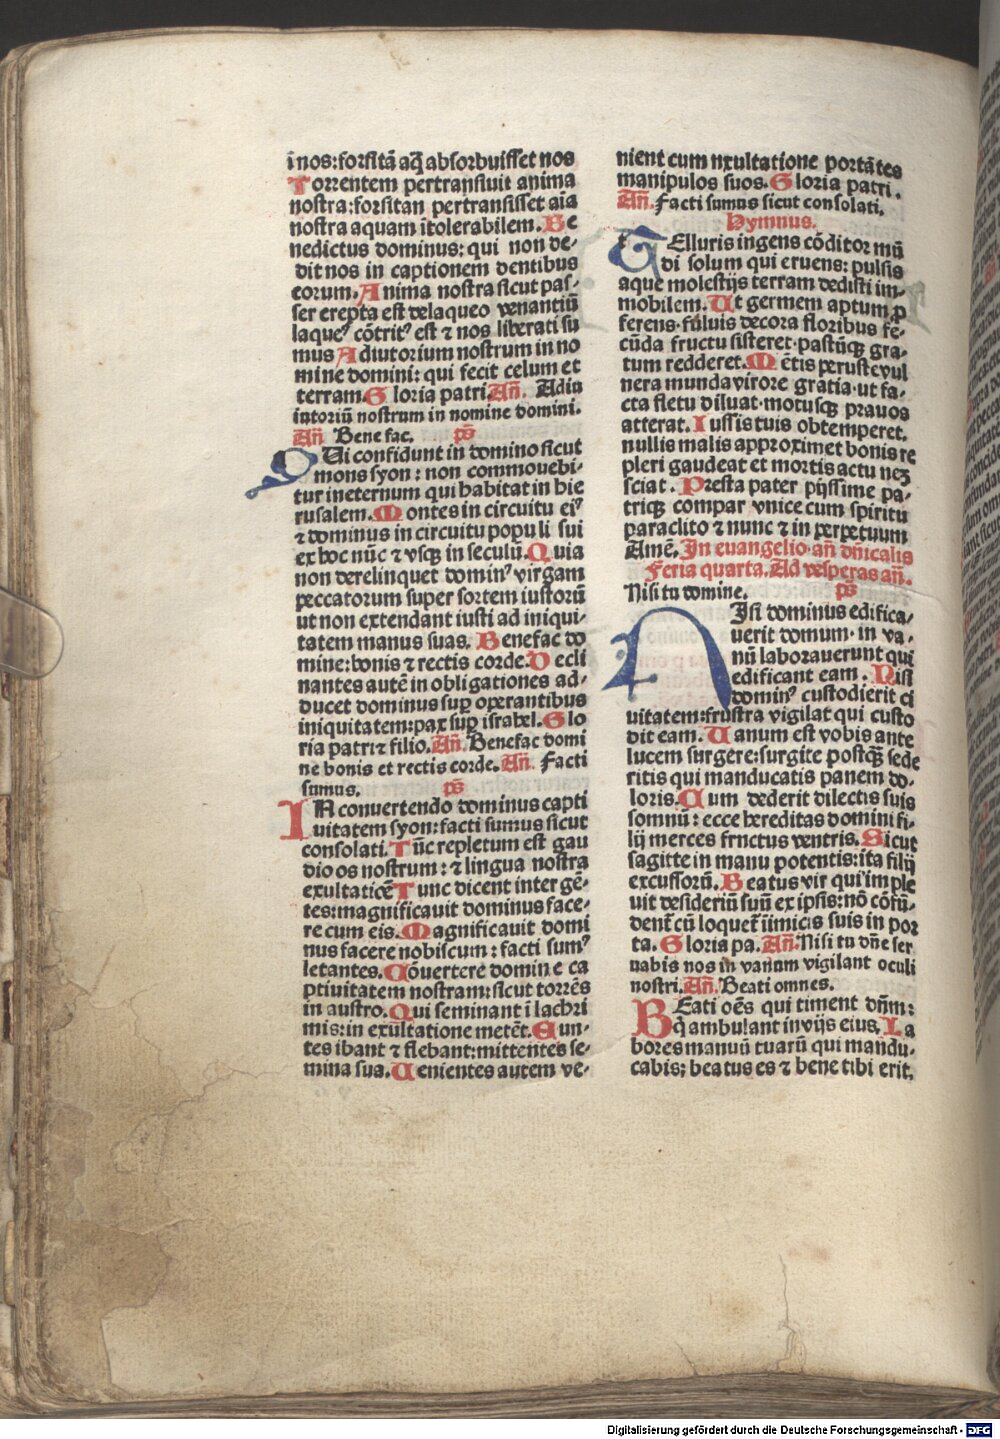 ī nos: forsitā aq̄ absorbuisset nos
Torrentem pertransiuit anima
nostra: forsitan pertransisset aīa
nostra aquam ītolerabilem. Be
nedictus dominus: qui non de-
dit nos in captionem dentibus
eorum. Anima nostra sicut pas-
ser erepta est delaqueo venantiū
laqueꝰ cōtritꝰ est ⁊ nos liberati su
mus Adiutorium nostrum in no
mine domini: qui fecit celum et
terram. Gloria patri. Añ. Adiu
iutoriū nostrum in nomine domini.
Añ Bene fac. ps̄
QUi confidunt in domino sicut
mons syon: non commouebi-
tur ineternum qui habitat in hie
rusalem. Montes in circuitu eiꝰ
⁊ dominus in circuitu populi sui
ex hoc nūc ⁊ vsqꝫ in seculū. Quia
non derelinquet dominꝰ virgam
peccatorum super sortem iustorū
ut non extendant iusti ad iniqui-
tatem manus suas. Benefac do
mine: bonis ⁊ rectis corde. Decli
nantes autē in obligationes ad-
ducet dominus suꝑ operantibus
iniquitatem: pax suꝑ israhel. Glo
ria patri ⁊ filio. Añ. Benefac domi
ne bonis et rectis corde. Añ. Facti
sumus. ps̄
IN conuertendo dominus capti
uitatem syon: facti sumus sicut
consolati. Tūc repletum est gau
dio os nostrum: ⁊ lingua nostra
exultatiōe Tunc dicent inter gē-
tes: magnificauit dominus face-
re cum eis. Magnificauit domi
nus facere nobiscum: facti sumꝰ
letantes. Cōuertere domine ca
ptiuitatem nostram: sicut torrēs
in austro. Qui seminant ī lachri
mis: in exultatione metēt. Eun-
tes ibant ⁊ flebant: mittentes se-
mina sua. Uenientes autem ve-
nient cum nxultatione portātes
manipulos suos. Gloria patri.
Añ. Facti sumus sicut consolati.
Hymnus.
TElluris ingens cōditor mū
di solum qui eruens: pulsis
aque molestijs terram dedisti im-
mobilem. Ut germem aptum ꝓ
ferens· fuluis decora floribus fe-
cūda fructu sisteret· pastūqꝫ gra-
tum redderet. Mētis peruste vul
nera munda virore gratia· ut fa-
cta fletu diluat· motusqꝫ prauos
atterat. Iussis tuis obtemperet.
nullis malis approximet bonis re
pleri gaudeat et mortis actu neꝫ
sciat. Presta pater pijssime pa-
triqꝫ compar vnice cum spiritu
paraclito ⁊ nunc ⁊ in perpetuum
Amē. In euangelio· añ dn̄icalis
Feria quarta. Ad vesperas añ.
Nisi tu domine. ps̄
NIsi dominus edifica-
uerit domum· in va-
nū laborauerunt qui
edificant eam. Nisi
dominꝰ custodierit ci
uitatem: frustra vigilat qui custo
dit eam. Uanum est vobis ante
lucem surgere: surgite postqꝫ sede
ritis qui manducatis panem do-
loris. Cum dederit dilectis suis
somnū: ecce hereditas domini fi-
lij merces frnctus ventris. Sicut
sagitte in manu potentis: ita filij
excussorū. Beatus vir qui imple
uit desideriū suū ex ipsis: nō cōfū-
dent̄ cū loquet̄ īimicis suis in por
ta. Gloria pa. Añ. Nisi tu dn̄e ser
uabis nos in vanum vigilant oculi
nostri. Añ. Beati omnes.
BEati oēs qui timent dn̄m:
q̄ ambulant in vijs eius. La
bores manuū tuarū qui mandu-
cabis: beatus es ⁊ bene tibi erit.
Digitalisierung gefördert durch die Deutsche Forschungsgemeinschaft - DFG